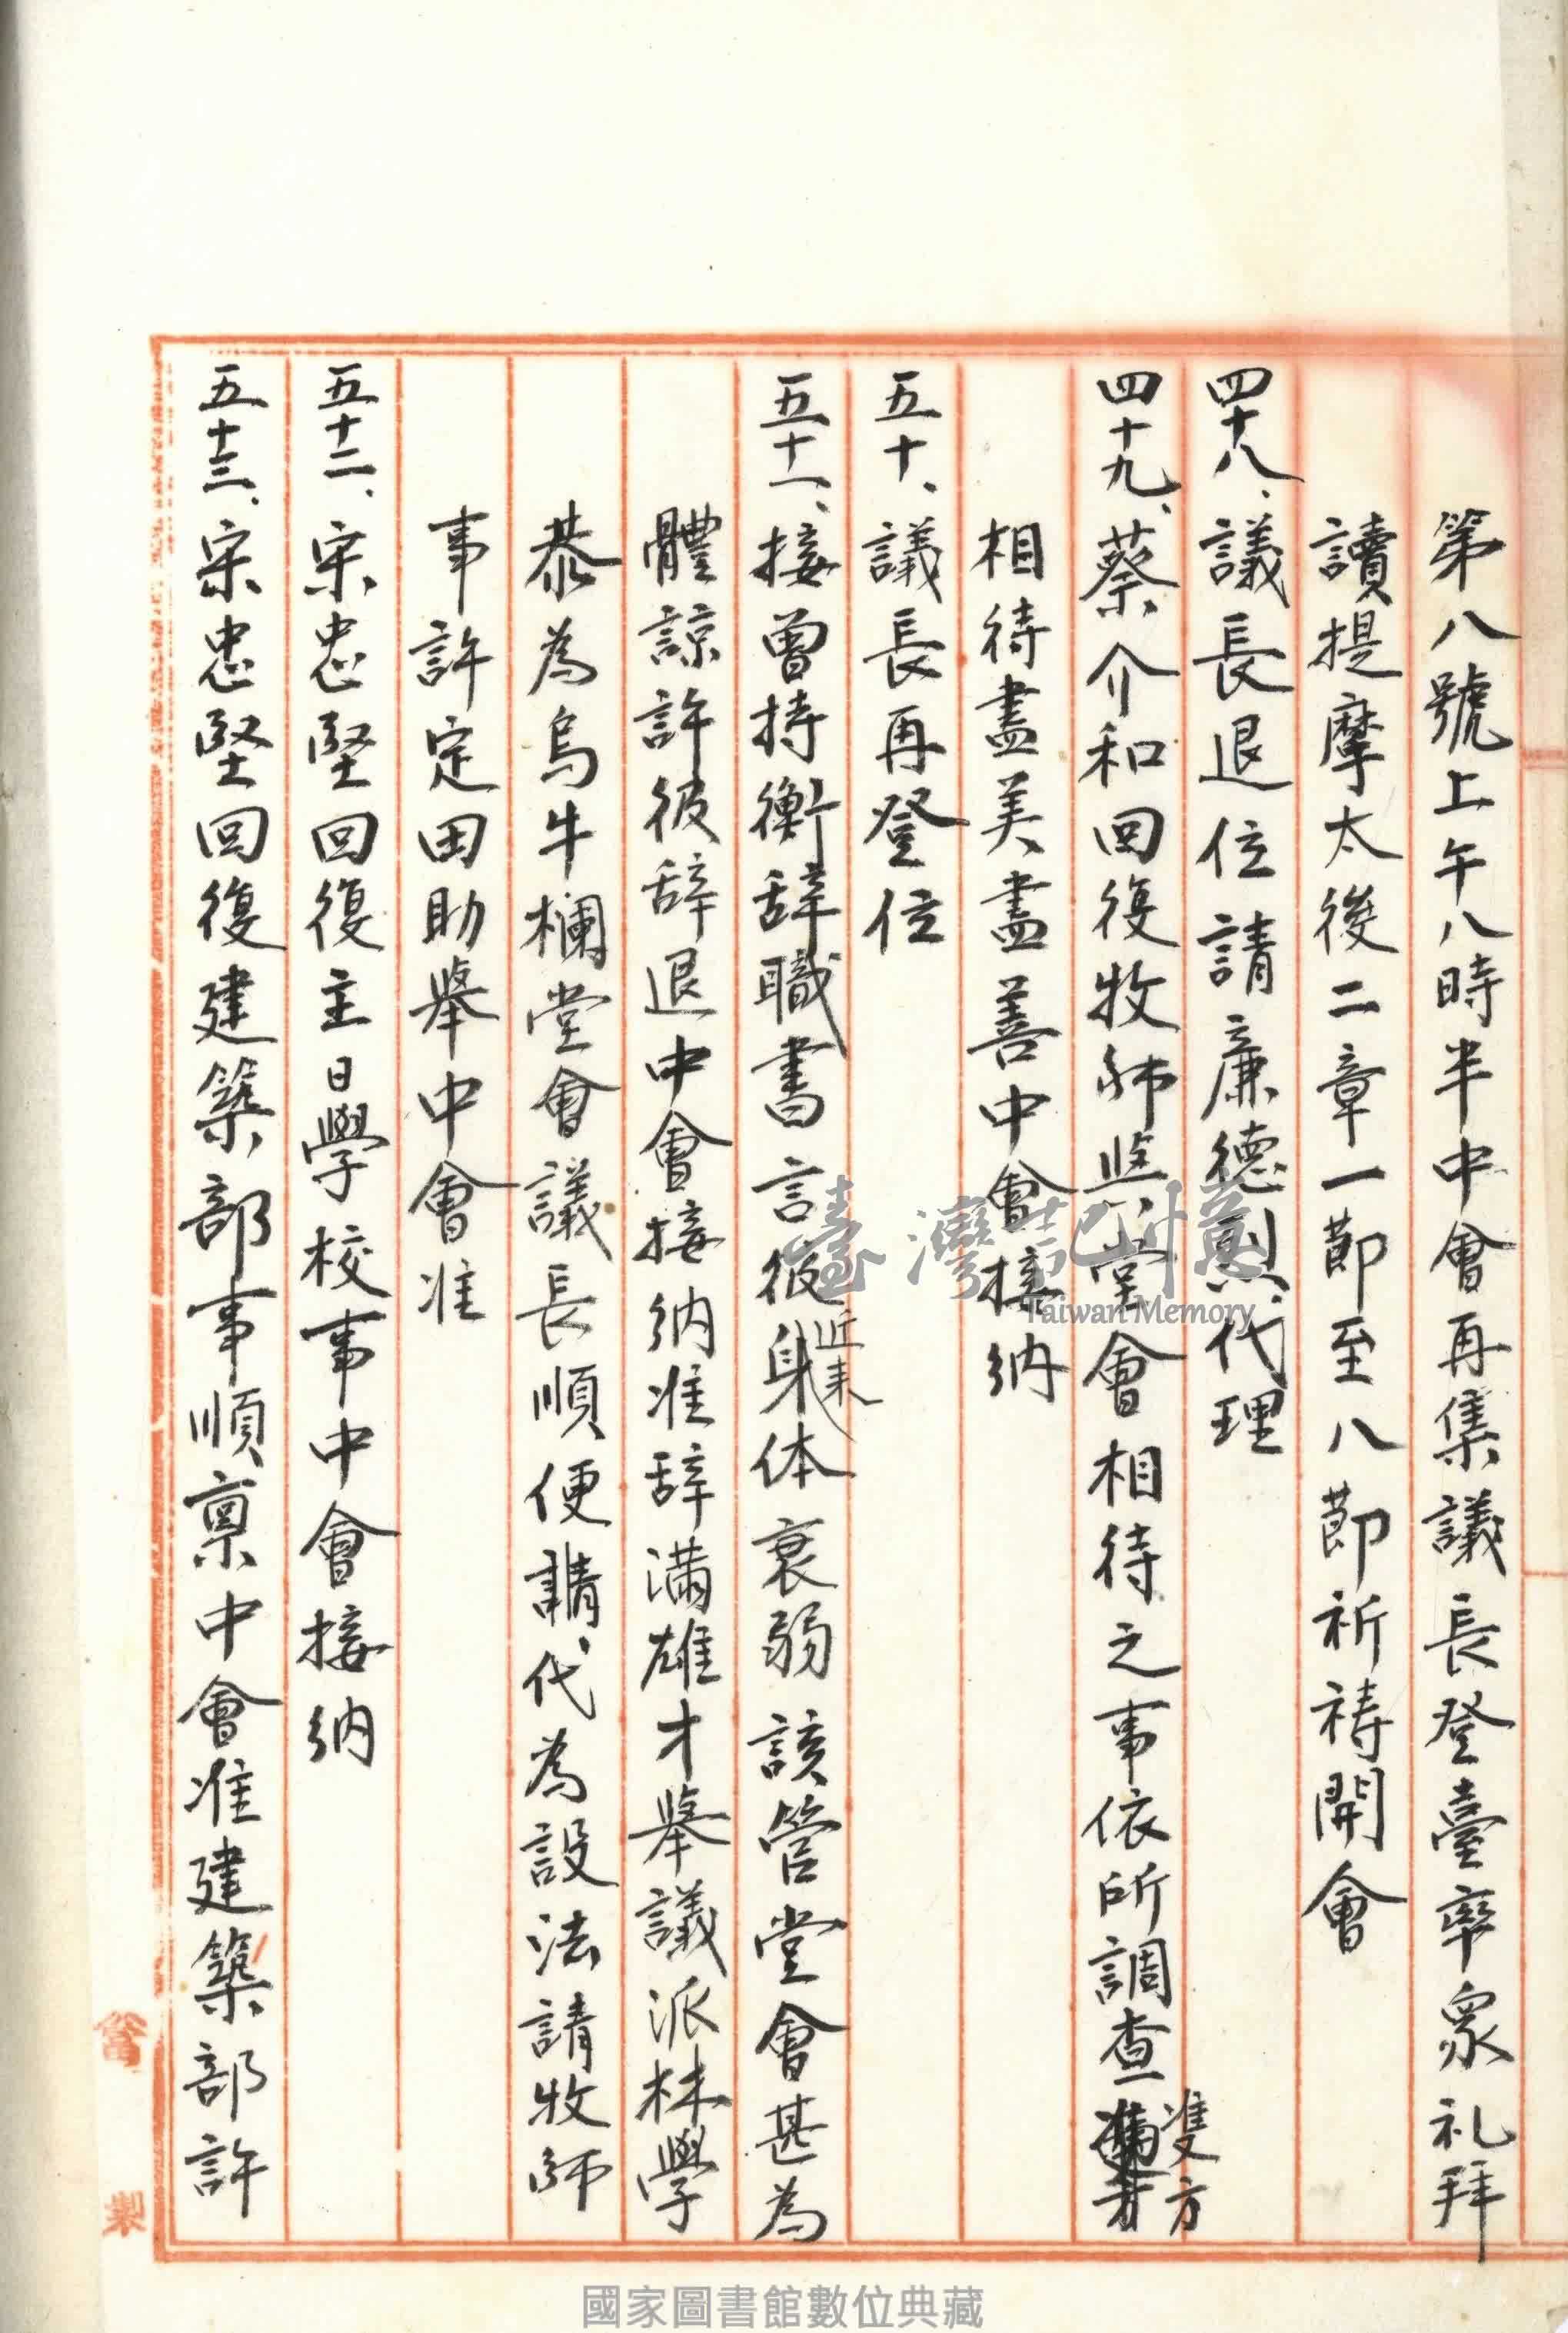 第八號上午八時半中會再集議長登臺率眾礼拜
讀提摩太後二章一節至八節祈禱開會
四十八、議長退位請廉德烈代理
四十九、蔡介和回復牧師與堂會相待之事依所調查雙方
相待盡美盡善中會接納
五十、議長再登位
五十一、接曾持衡辞職書言彼近來身体衰弱該管堂會甚為
體諒許彼辞退中會接納准辞滿雄才舉議派林學
恭為烏牛欄堂會議長順便請代為設法請牧師
事許定田助舉中會准
五十二、宋忠堅回復主日學校事中會接納
五十三、宋忠堅回復建築部事順稟中會准建築部許
臺灣記憶
Taiwan Memory
製
國家圖書館數位典藏